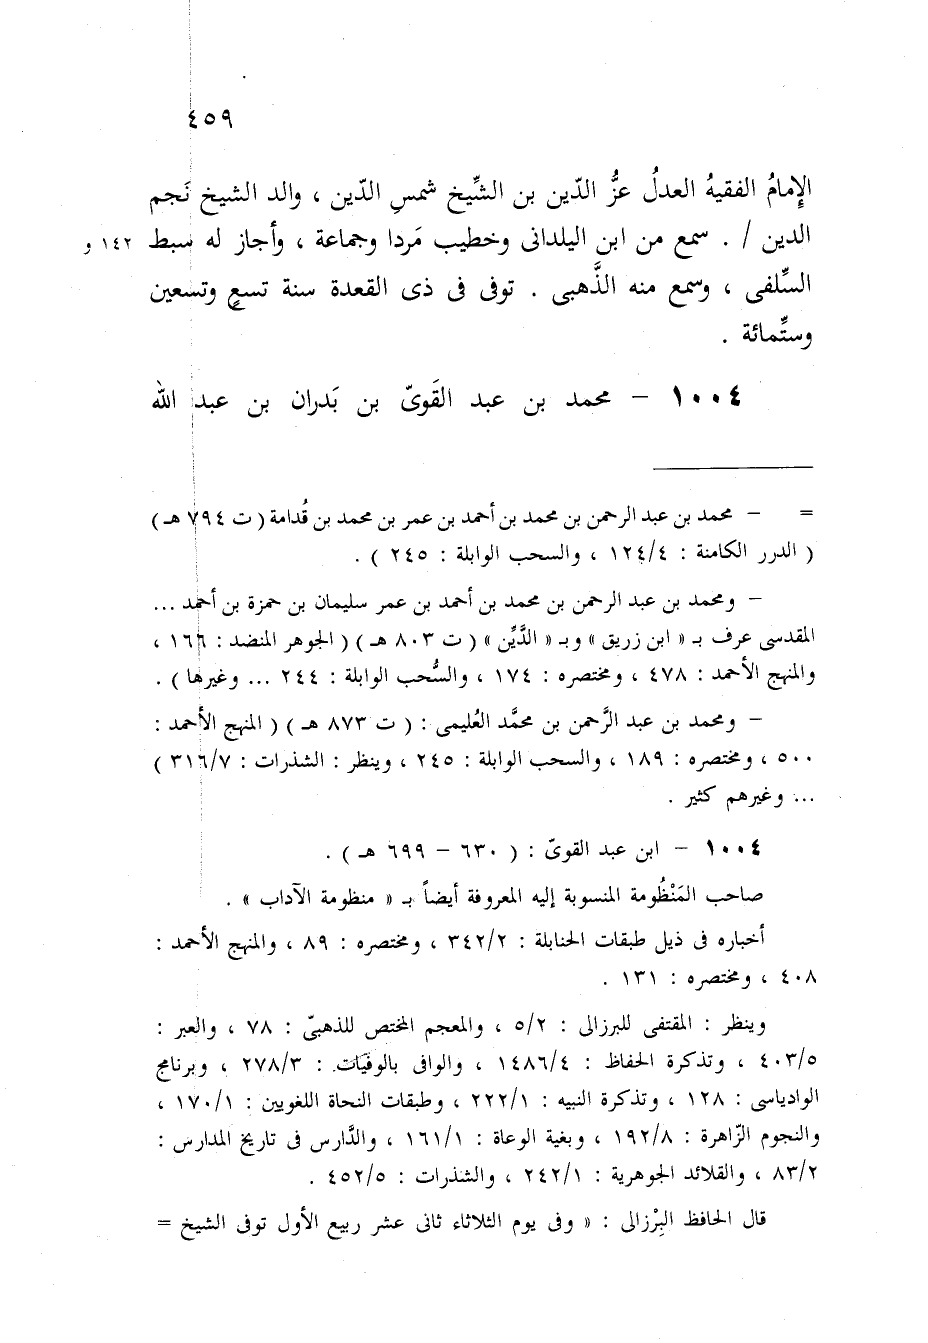 ٤٥٩
الإِمامُ الفقيهُ العدلُ عزُّ الدّين بن الشَّيخ شمسِ الدّين ، والد الشيخ نَجم
الدين / . سمع من ابن اليلدانى وخطيب مَردا وجماعة ، وأجاز له سبط ١٤٢ و
السِّلفى ، وسمع منه الذَّهبى . توفى فى ذى القعدة سنة تسعٍ وتسعين
وستِّمائة .
١٠٠٤ - محمد بن عبد القَوىّ بن بَدران بن عبد الله
= - محمد بن عبد الرحمن بن محمد بن أحمد بن عمر بن محمد بن قُدامة ( ت ٧٩٤ هـ )
( الدرر الكامنة : ١٢٤/٤ ، والسحب الوابلة : ٢٤٥ ) .
- ومحمد بن عبد الرحمن بن محمد بن أحمد بن عمر سليمان بن حمزة بن أحمد ...
المقدسى عرف بـ « ابن زريق » وبـ « الدَّيِّن » ( ت ٨٠٣ هـ ) ( الجوهر المنضد : ١٦٦ ،
والمنهج الأحمد : ٤٧٨ ، ومختصره : ١٧٤ ، والسُّحب الوابلة : ٢٤٤ ... وغيرها ) .
- ومحمد بن عبد الرَّحمن بن محمَّد العُليمى : ( ت ٨٧٣ هـ ) ( المنهج الأحمد :
٥٠٠ ، ومختصره : ١٨٩ ، والسحب الوابلة : ٢٤٥ ، وينظر : الشذرات : ٣١٦/٧ )
... وغيرهم كثير .
١٠٠٤ - ابن عبد القوىّ : ( ٦٣٠ - ٦٩٩ هـ ) .
صاحب المَنْظُومة المنسوبة إليه المعروفة أيضاً بـ « منظومة الآداب » .
أخباره فى ذيل طبقات الحنابلة : ٣٤٢/٢ ، ومختصره : ٨٩ ، والمنهج الأحمد :
٤٠٨ ، ومختصره : ١٣١ .
وينظر : المقتفى للبرزالى : ٥/٢ ، والمعجم المختص للذهبىّ : ٧٨ ، والعبر :
٤٠٣/٥ ، وتذكرة الحفاظ : ١٤٨٦/٤ ، والوافى بالوفَيَات : ٢٧٨/٣ ، وبرنامج
الوادياسى : ١٢٨ ، وتذكرة النبيه : ٢٢٢/١ ، وطبقات النحاة اللغويين : ١٧٠/١ ،
والنجوم الزّاهرة : ١٩٢/٨ ، وبغية الوعاة : ١٦١/١ ، والدَّارس فى تاريخ المدارس :
٨٣/٢ ، والقلائد الجوهرية : ٢٤٢/١ ، والشذرات : ٤٥٢/٥ .
قال الحافظ البِرْزالى : « وفى يوم الثلاثاء ثانى عشر ربيع الأول توفى الشيخ =